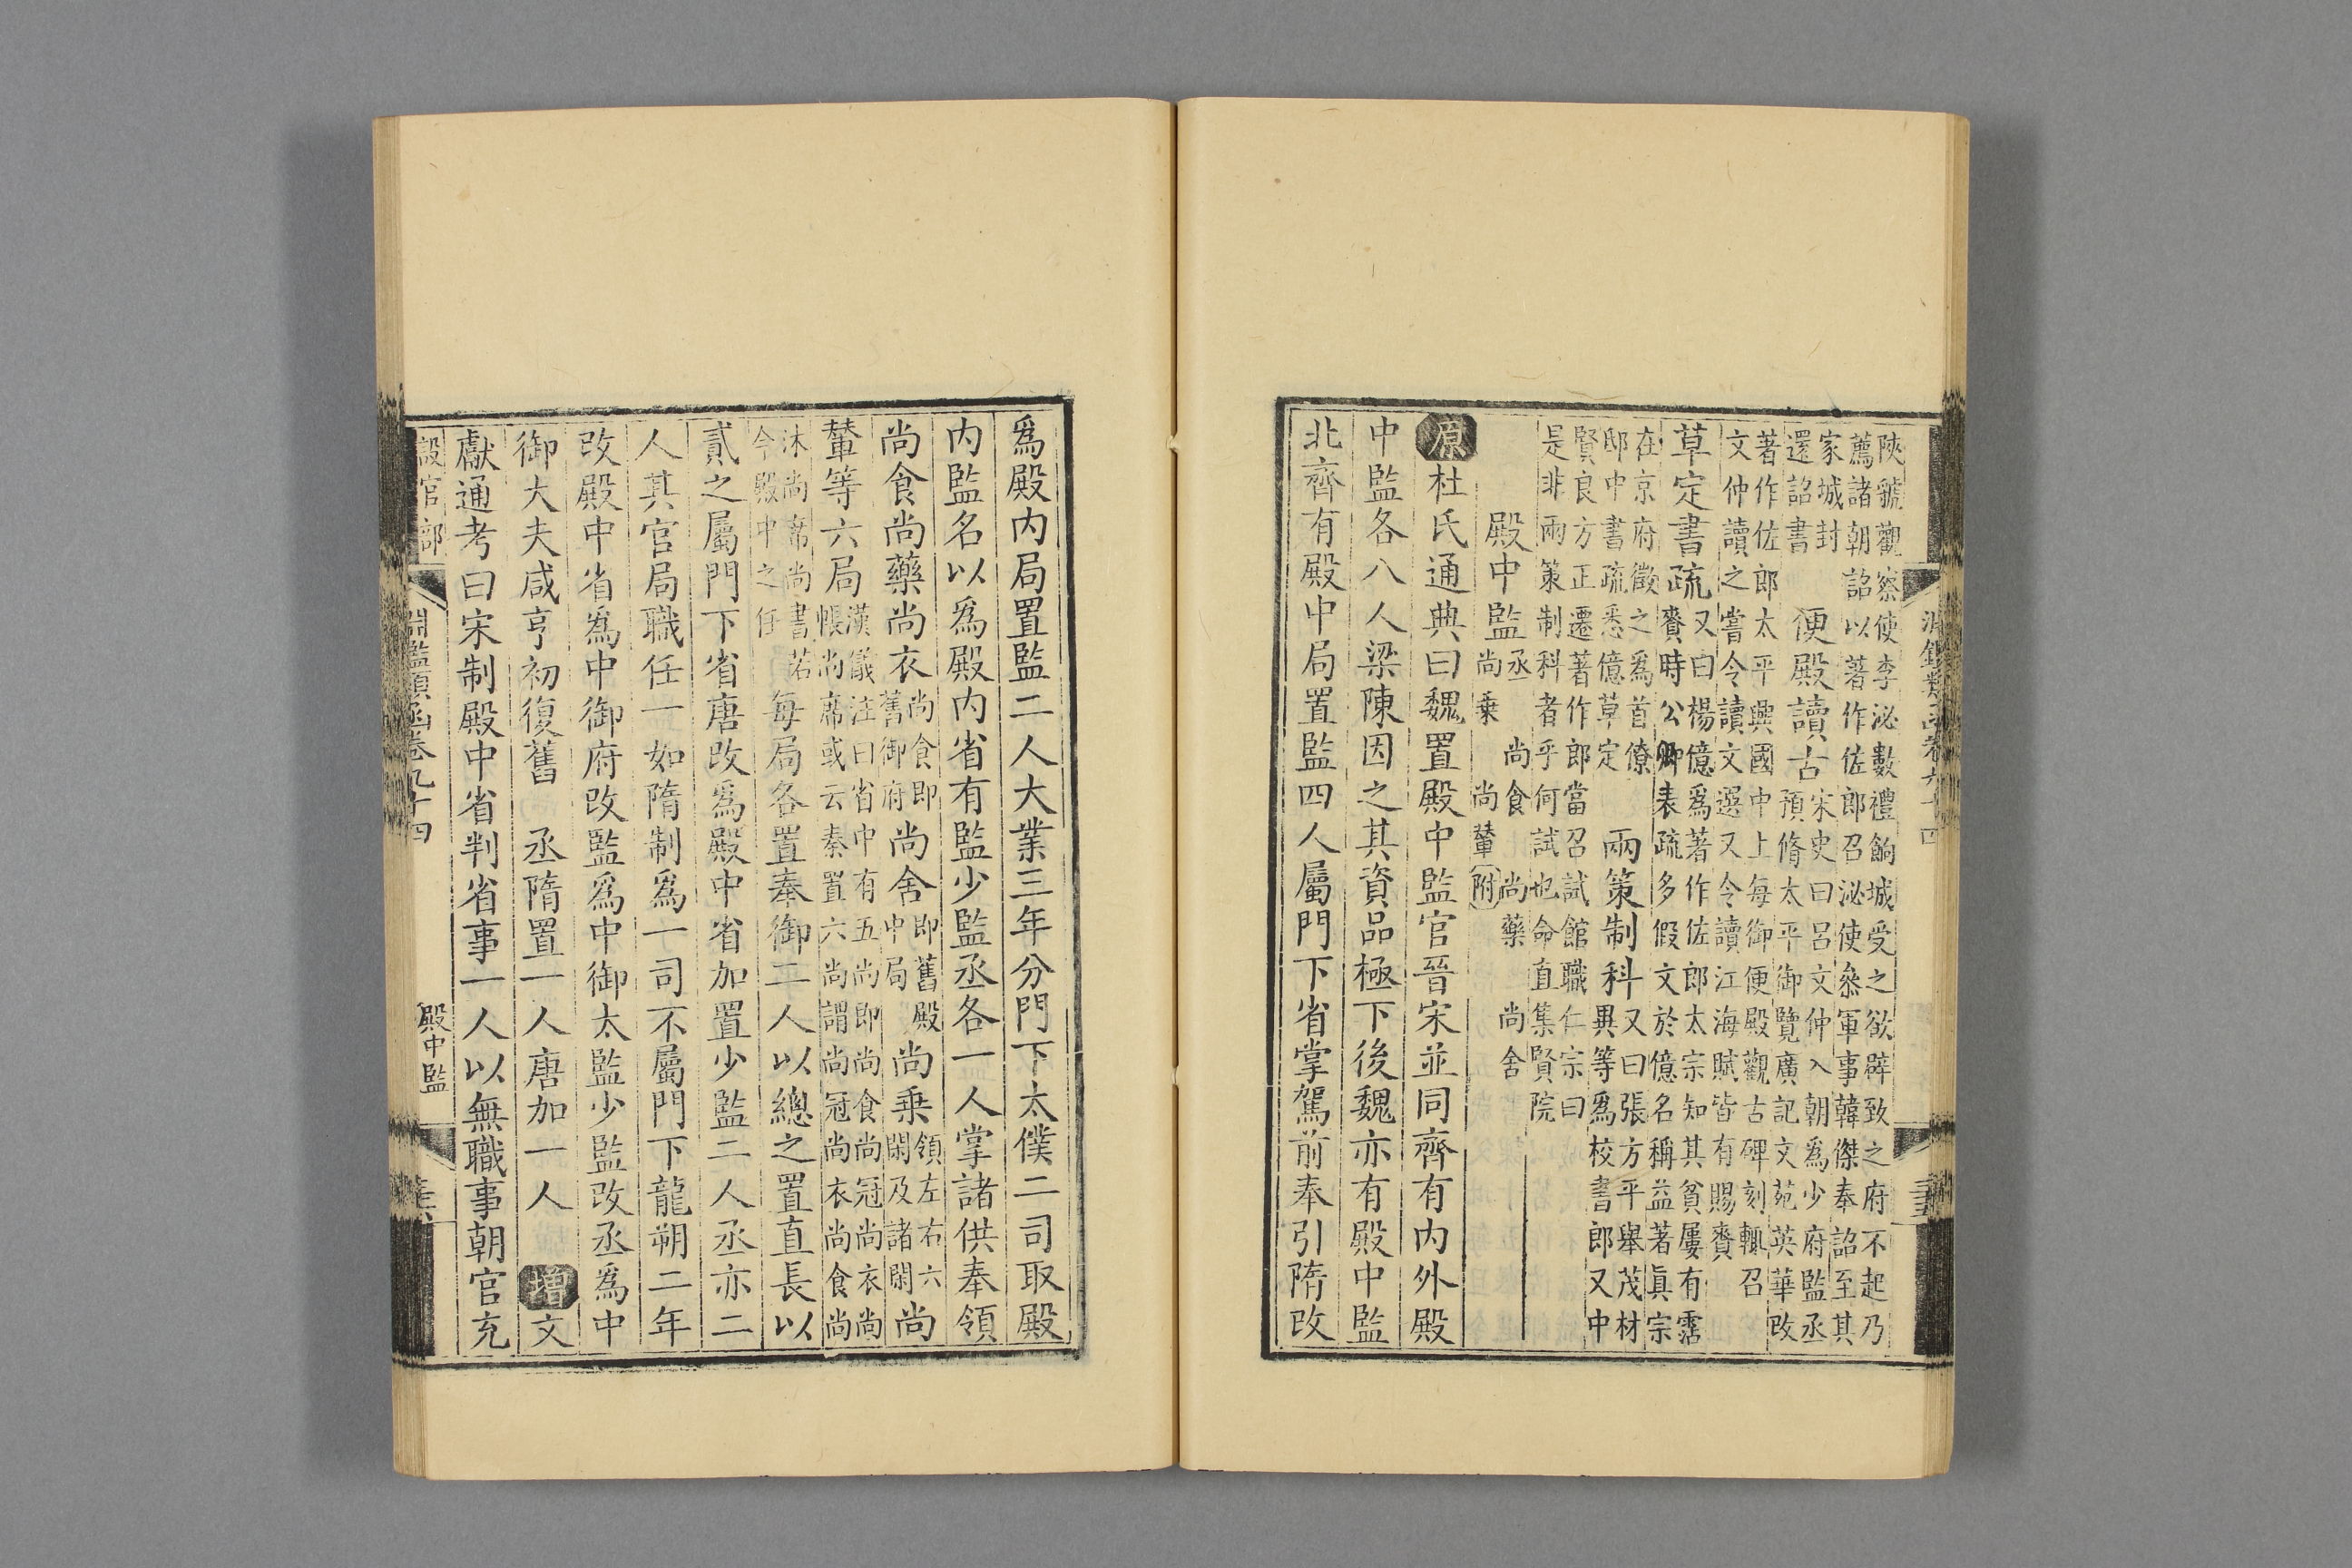 陝虢觀察使李泌數禮餉城受之欲辟致之府不起乃
薦諸朝詔以著作佐郎召泌使叅軍事韓傑奉詔至其
家城封
還詔書
便殿讀古
宋史曰呂文仲入朝爲少府監丞
預脩太平御覽廣記文苑英華改
著作佐郎太平興國中上每御便殿觀古碑刻輒召
文仲讀之嘗令讀文選又令讀江海賦皆有賜賚
草定書疏
又曰楊億爲著作佐郎太宗知其貧屢有霑
賚時公卿表疏多假文於億名稱益著眞宗
在京府徵之爲首僚
邸中書疏悉億草定
兩策制科
又曰張方平舉茂材
異等爲校書郎又中
賢良方正遷著作郎當召試館職仁宗曰
是非兩策制科者乎何試也命直集賢院
殿中監
丞 尚食 尚藥 尚舍
尚乗 尚輦附
原杜氏通典曰魏置殿中監官晉宋並同齊有内外殿
中監各八人梁陳因之其資品極下後魏亦有殿中監
北齊有殿中局置監四人屬門下省掌駕前奉引隋改
爲殿内局置監二人大業三年分門下太僕二司取殿
内監名以爲殿内省有監少監丞各一人掌諸供奉領
尚食尚藥尚衣
尚食即
舊御府
尚舍
即舊殿
中局
尚乗
領左右六
閑及諸閑
尚
輦等六局
漢儀注曰省中有五尚即尚食尚冠尚衣尚
帳尚席或云秦置六尚謂尚冠尚衣尚食尚
沐尚席尚書若
今殿中之任
每局各置奉御二人以總之置直長以
貳之屬門下省唐改爲殿中省加置少監二人丞亦二
人其官局職任一如隋制爲一司不屬門下龍朔二年
改殿中省爲中御府改監爲中御太監少監改丞爲中
御大夫咸亨初復舊 丞隋置一人唐加一人 增文
獻通考曰宋制殿中省判省事一人以無職事朝官充
設官部
淵鑑類函卷九十四
殿中監